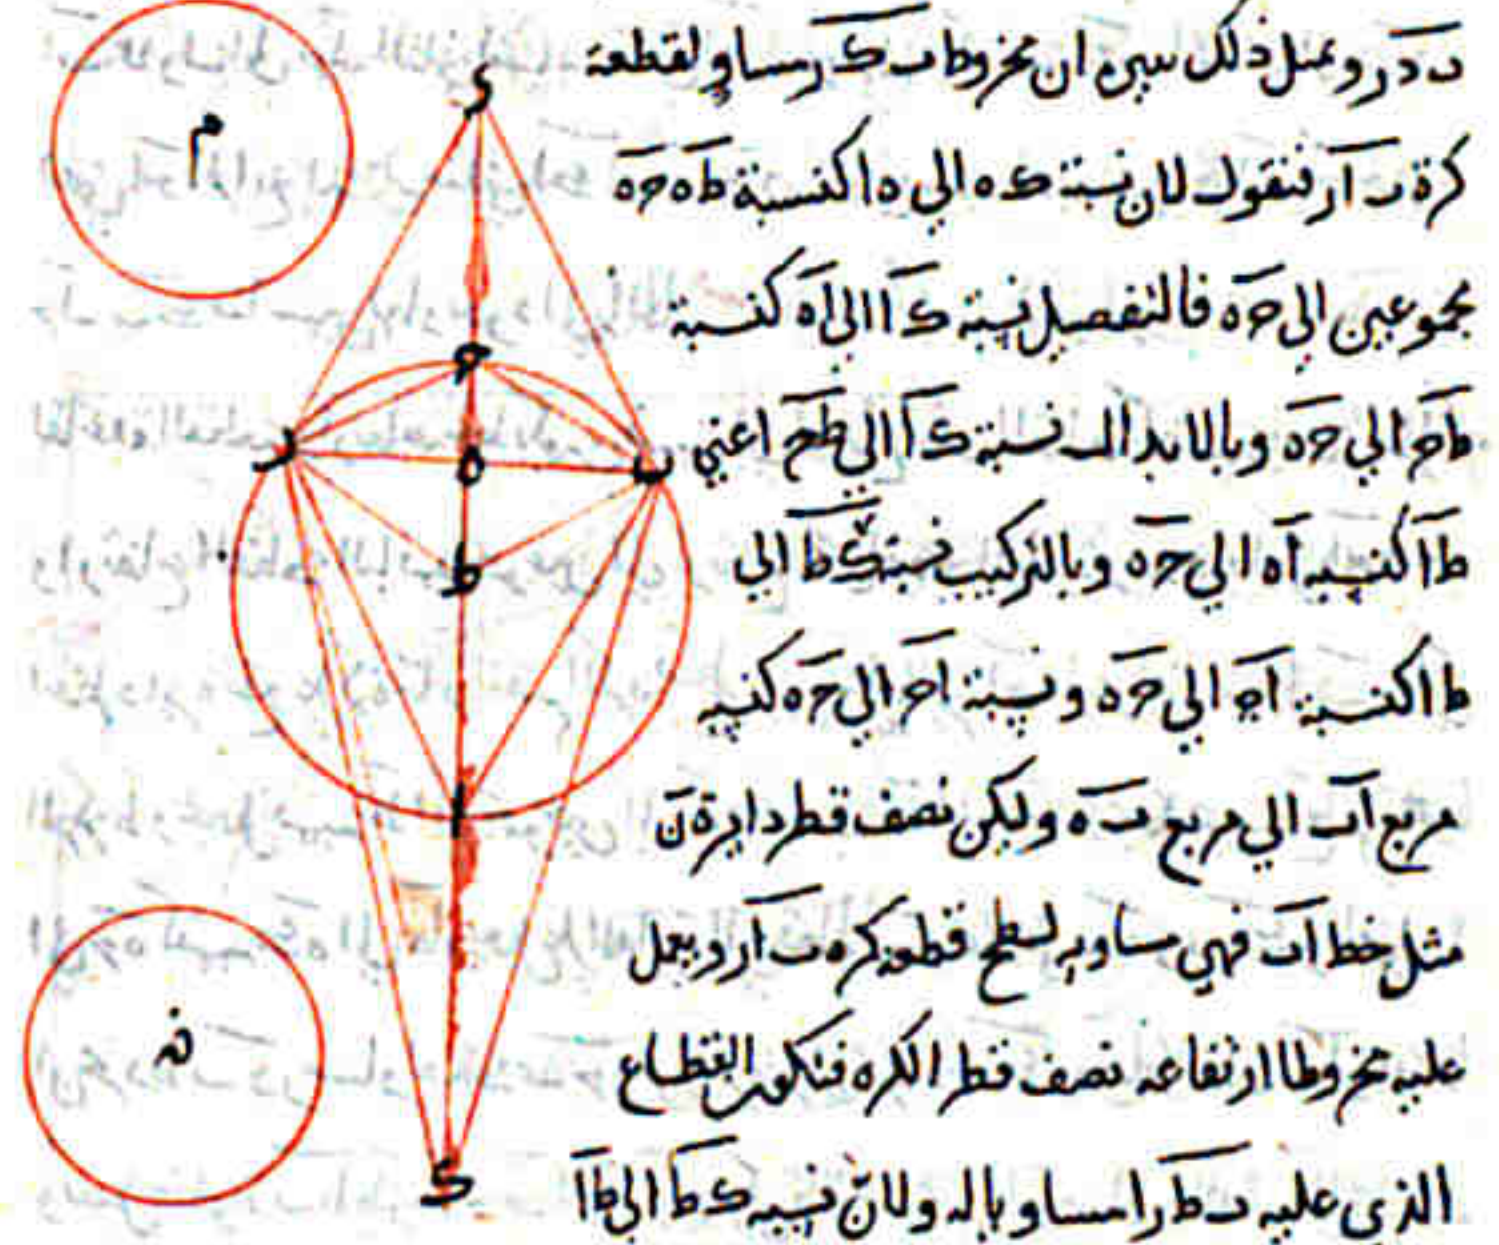 ب د ر وبمثل ذلك نبين ان مخروط ب ك ر مساو لقطعة
كرة ب ا ر فنقول لان نسبة ك ه الي ه ا كنسبة ط ح ه
مجموعين الي ح ه فالتفصيل نسبة ك ا الي ا ه كنسبة
ط ح الي ح ه وبالابدال نسبة ك ا الي ط ح اعني
ط ا كنسبة ا ه الي ح ه وبالتركيب نسبة ك ط الي
ط ا كنسبة ا ح الي ح ه ونسبة ا ح الي ح ه كنسبة
مربع ا ب الي مربع ب ه وليكن نصف قطر دايرة ن
مثل خط ا ب فهي مساوية لسطح قطعة كره ب ا ر ويعمل
عليه مخروطا ارتفاعه نصف قطر الكره فيكون القطاع
الذي عليه ب ط ر ا مساويا له ولان نسبة ك ط الي ط ا
م
ح
ر
ه
ب
ط
ا
ك